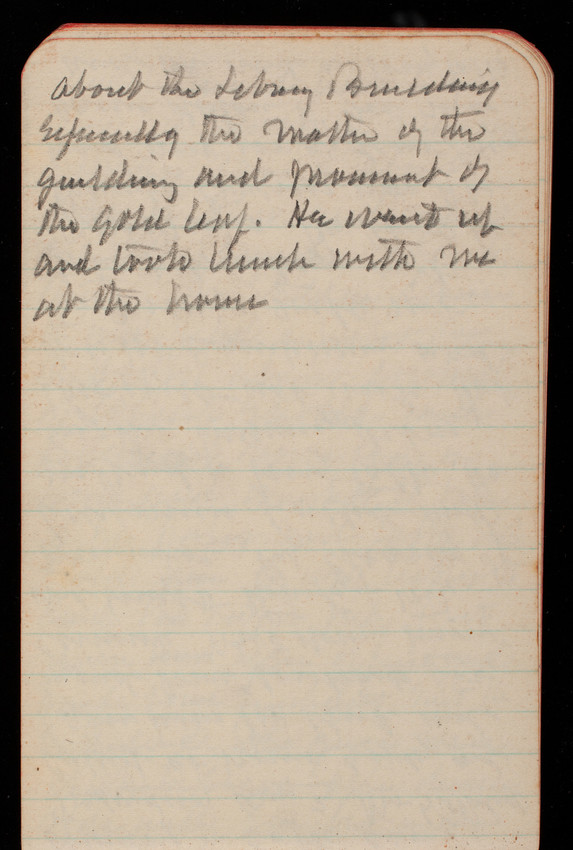 about the Library Building
Especially the matter of the
guilding and procument of
the gold leaf. He went up
and took lunch with me
at the house